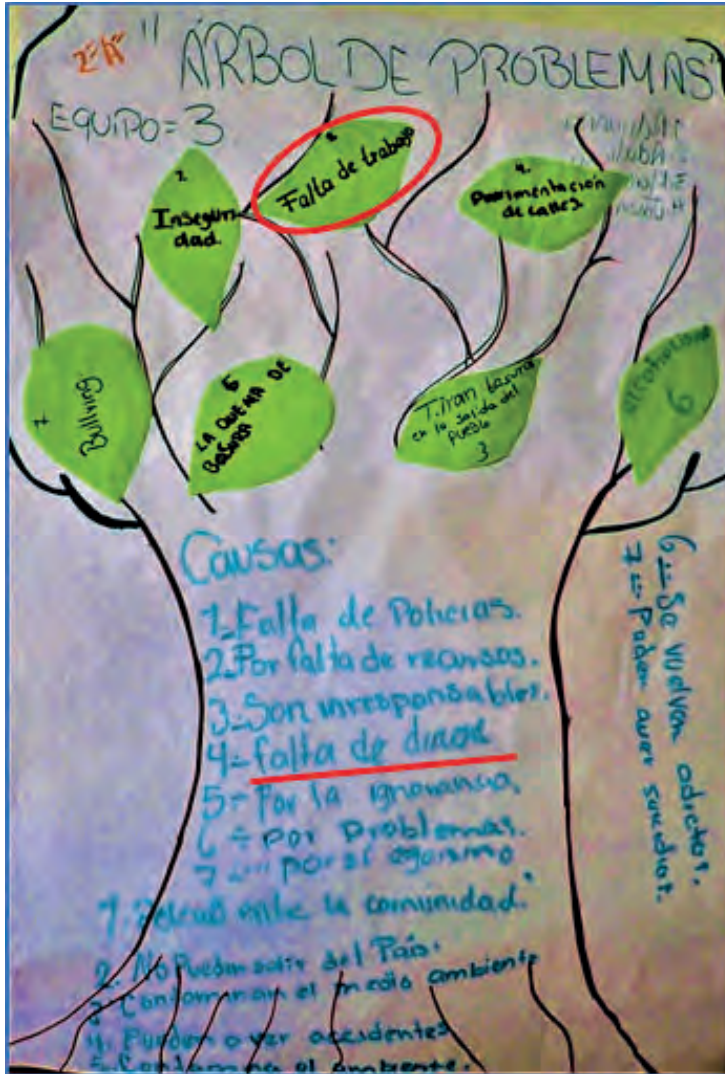 2º "A"
"ÁRBOL DE PROBLEMAS"
EQUIPO = 3
Falta de trabajo
1.
Inseguri
dad.
4.
Pavimentación
de calles.
7
Bullying.
5
LA QUEMA DE
BASURA
Tiran basura
en la salida del
pueblo
3
6
Causas:
1=Falta de Policias.
2=Por falta de recursos.
3=Son inresponsables.
4=falta de dinero
5=Por la ignorancia.
6=por problemas.
7=por el egoismo
1. entre la comunidad.
2. No Pueden salir del País.
3. Contaminan el medio ambiente
4. Pueden aver accidentes
5. Contamina el ambiente.
6=Se vuelven adictos.
7=Pueden aver suicidios.